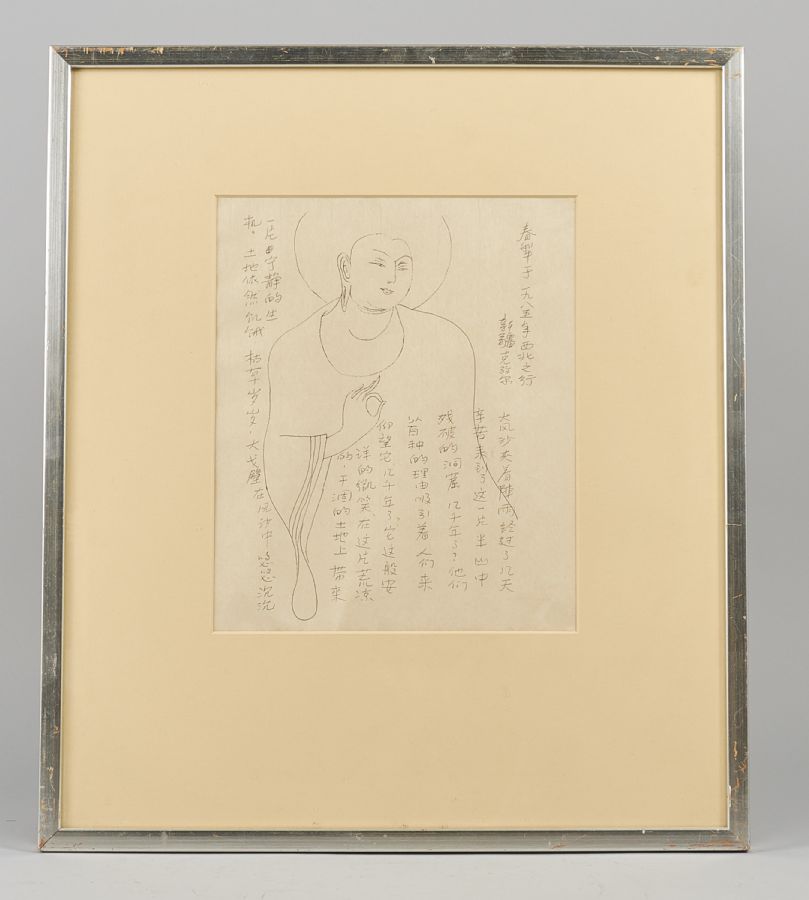 春犁于一九八五年西北之行
新疆克孜尔
大风沙夹着阵雨经过了几天
辛苦来到了这一片半山中
残破的洞窟几千年了?他们
以百种的理由吸引着人们来
仰望它几千年了,它这般安
详的微笑,在这片荒凉
的,干涸的土地上带来
一片宁静的生
机。土地依然饥饿枯草岁岁,大戈壁在风沙中悠悠沉沉